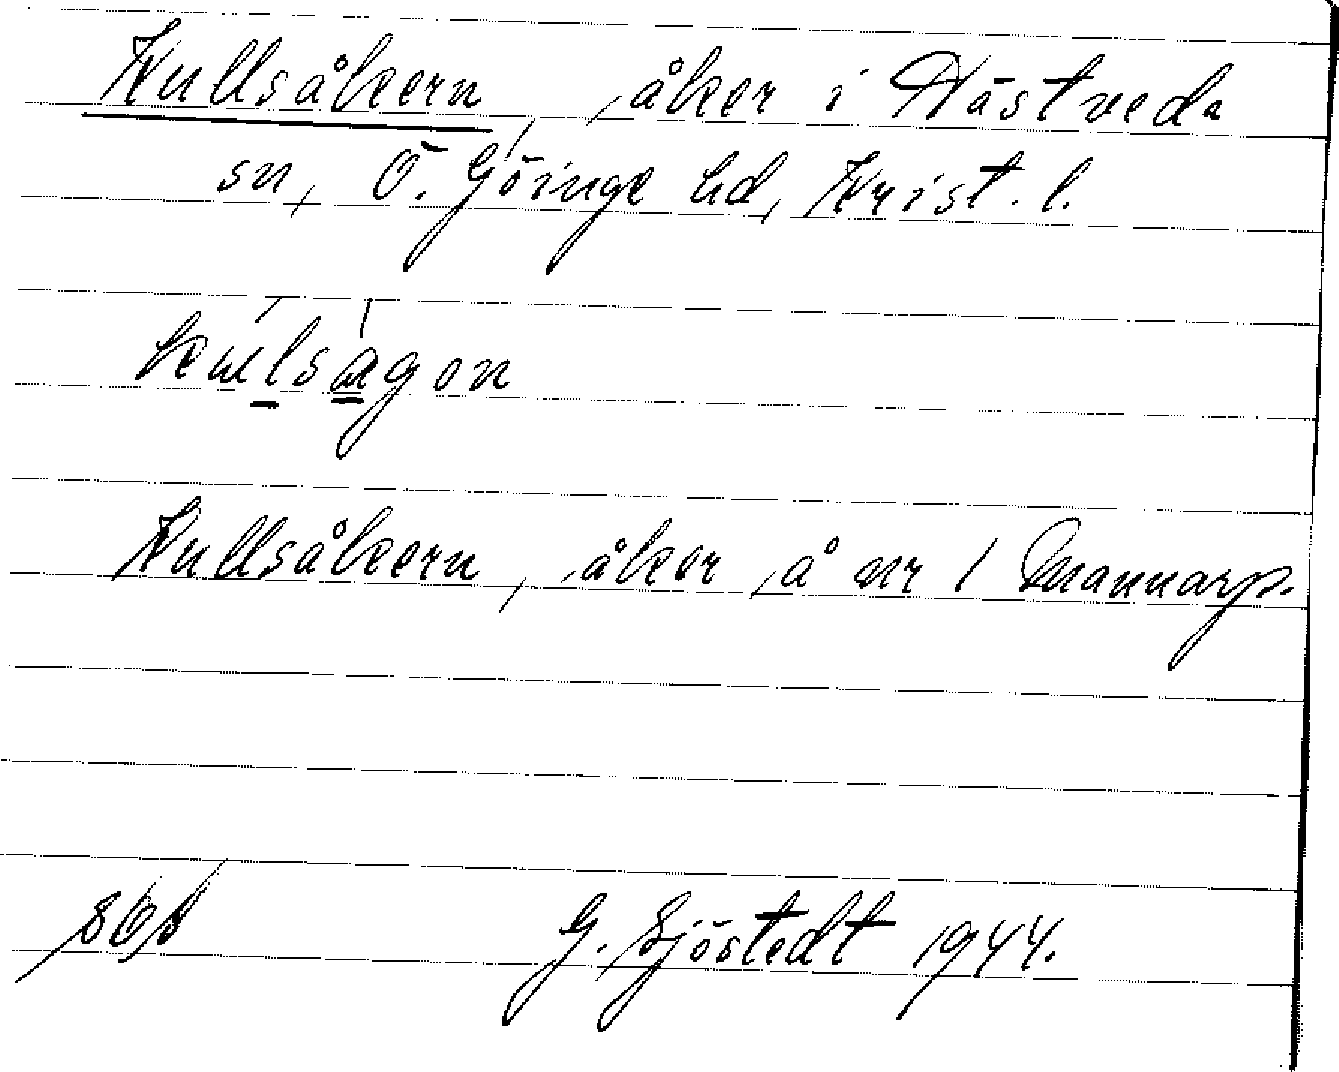 Kullsåkern, åker i Hästveda
sn, Ö. Göinge hd, Krist. l.
kulsagon
Kullsåkern, åker å nr 1 Mannarp.
G. Sjöstedt 1944.